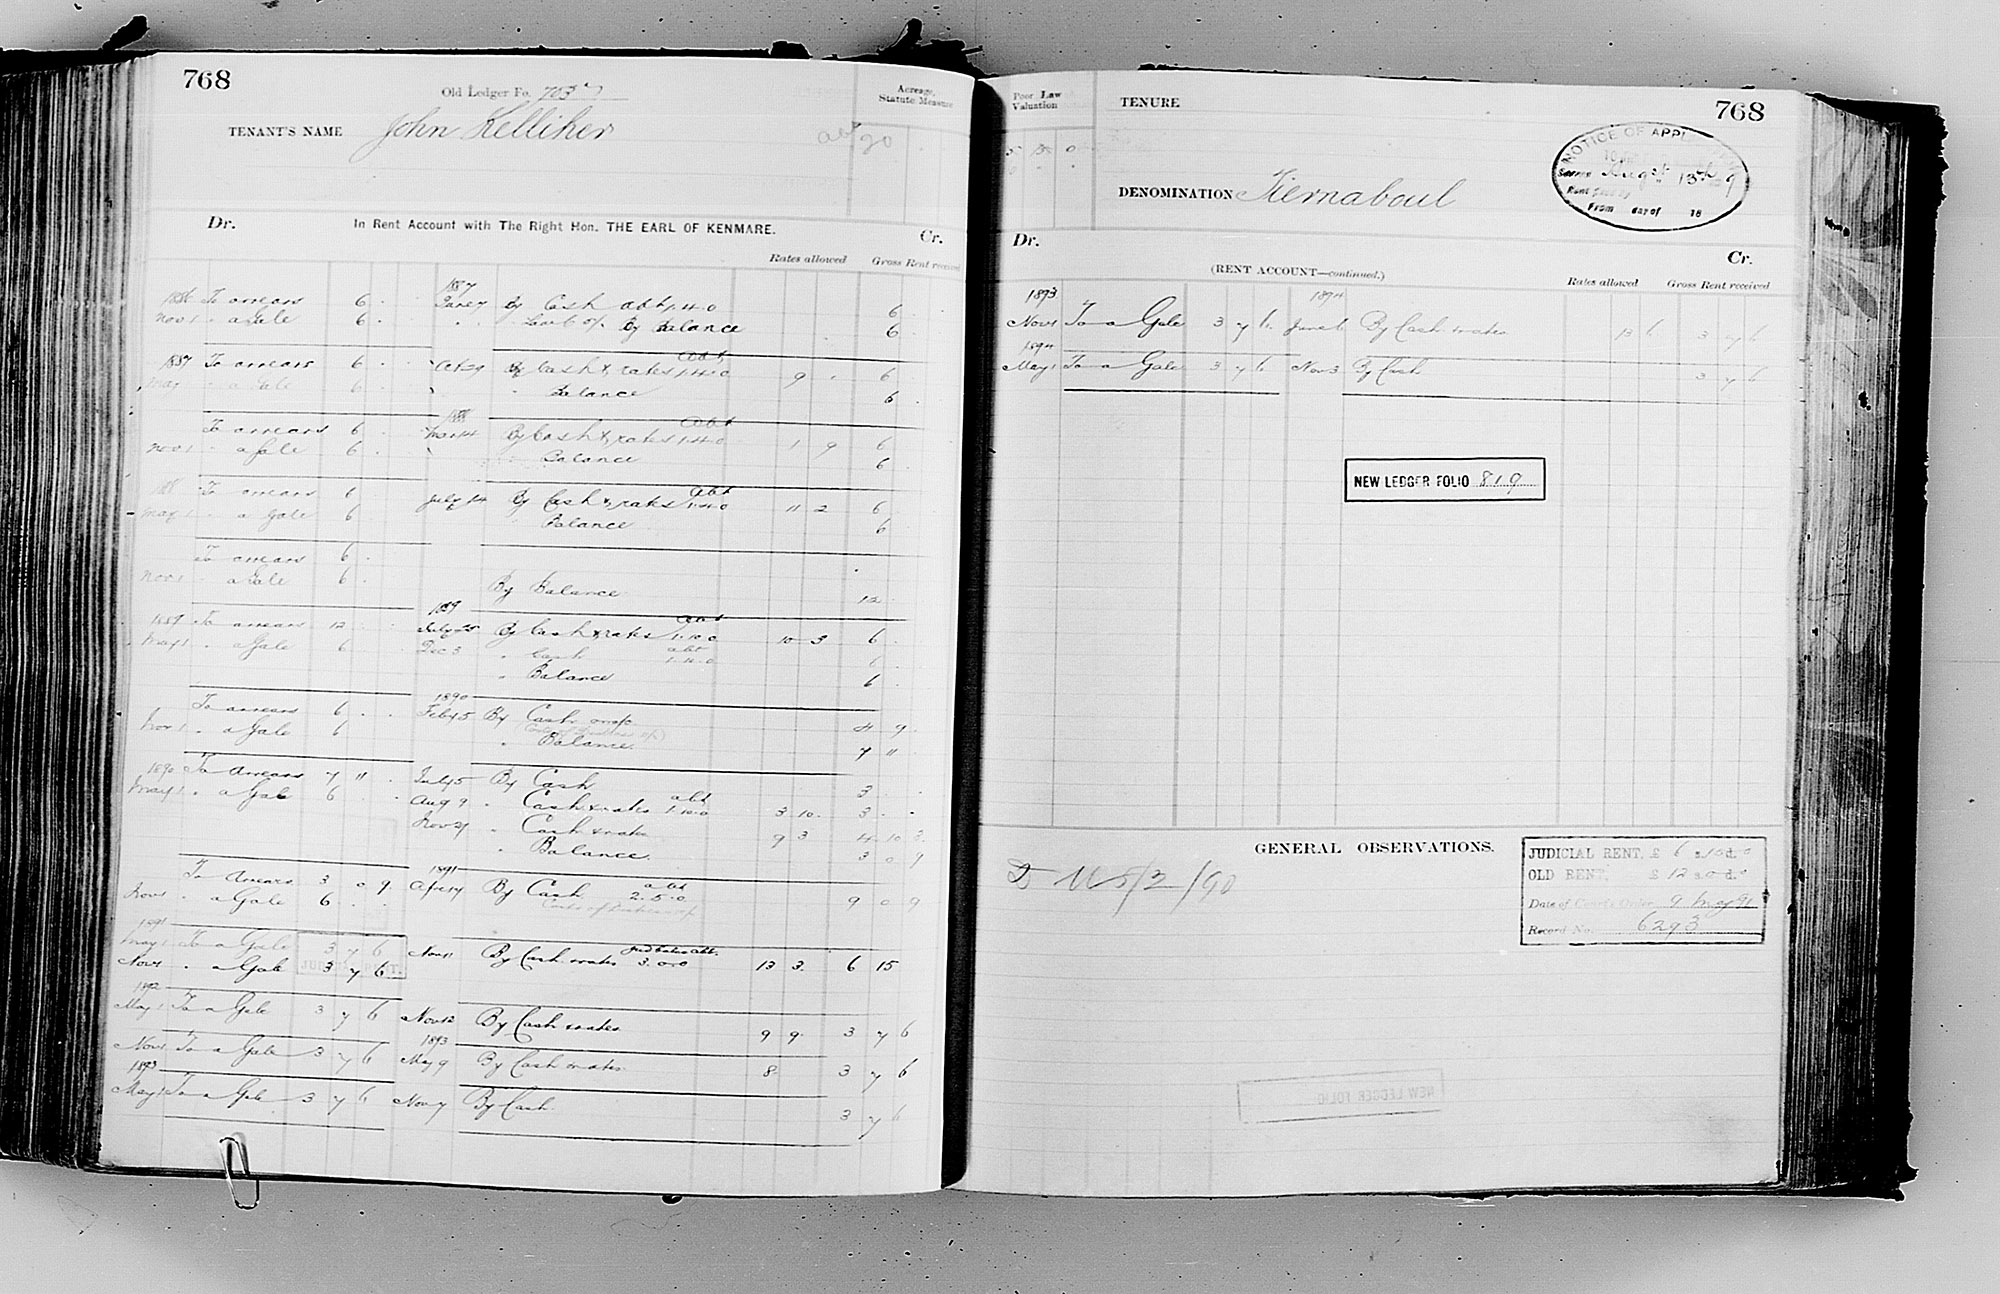 768
Old Ledger Fo. 703
Acreage, Statute Measure
TENANT'S NAME John Kelliher
abt 90
Dr. In Rent Account with The Right Hon. THE EARL OF KENMARE. Cr.
Rates allowed Gross Rent received
1887
1886 To arrears 6 . By Cash abt 1.4.0 6
Nov 1 " a Gale 6 . By Balance 6
1887 To arrears 6 . By Cash & rates abt 1.4.0 9 . 6
May 1 " a Gale 6 Balance 6
1888
To arrears 6 . By Cash & rates abt 1.4.0 1 9 6
Nov 1 " a Gale 6 . Balance 6
To arrears 6 July 14 By Cash & rates abt 1.4.0 11 2 6
May 1 " a Gale 6 Balance 6
To arrears 6 .
Nov 1 " a Gale 6 . By Balance 12
1889
1889 To arrears 12 July 25 By Cash & rates abt 1.10.0 10 3 6
May 1 " a Gale 6 Dec 3 " Cash abt 1.10.0 6
" Balance 6
1890
To arrears 6 . Feby 5 By Cash 4 9
Nov 1 " a Gale 6 " Balance 7 11
1890 To arrears 7 11 July 5 By Cash 3
May 1 " a Gale 6 Aug 9 " Cash & rates abt 1.10.0 3 10 3
Nov 21 " Cash & rates 9 3 4 10 3
" Balance 3 0 9
1891
To arrears 3 0 9 Apr 14 By Cash abt 2.5.0 9 0 9
Nov 1 " a Gale 6
1891
May 1 To a Gale 3 7 6 Nov 11 By Cash & rates 3.0.0 13 3 6 15
Nov 1 " a Gale 3 7 6
1892
May 1 To a Gale 3 7 6 Nov 12 By Cash & rates 9 9 3 7 6
1893
Nov 1 To a Gale 3 7 6 May 9 By Cash & rates 8 3 7 6
1893
May 1 To a Gale 3 7 6 Nov 7 By Cash 3 7 6
Poor Law Valuation
TENURE 768
NOTICE OF APPL
Augst 13th
Rent
From day of 18
DENOMINATION Tiernaboul
Dr. (RENT ACCOUNT—continued.) Cr.
Rates allowed Gross Rent received
1893 1894
Nov 1 To a Gale 3 7 6 June 6 By Cash & rates 13 6 3 7 6
1894
May 1 To a Gale 3 7 6 Nov 3 By Cash 3 7 6
NEW LEDGER FOLIO 819
GENERAL OBSERVATIONS.
JUDICIAL RENT, £ 6 s. 15 d. 0
OLD RENT, £ 12 s. 0 d. 0
Date of Court's Order 9 May 91
Record No. 6293
NEW LEDGER FOLIO